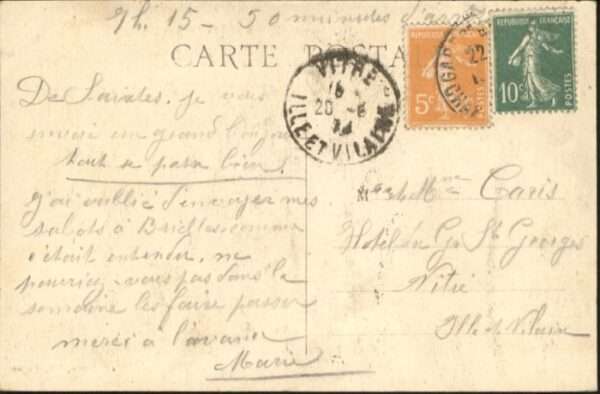 7h. 15 - 50 minutes d'
CARTE POSTA
RÉPUBLIQUE FRANÇAISE
5c
RÉPUBLIQUE FRANÇAISE
10c
VITRÉ
20 - 8
ILLE ET VILAINE
22
GARE
De je vous
envoie un grand bonjour
tout se passe bien.
j'ai oublié d'envoyer mes
salots à Brielles comme
c'était entendu, ne
pourriez-vous pas dans la
semaine les faire passer
merci à l'avance
Marie
M et Mme Caris
Hôtel du Gd St Georges
Vitré
Ille et Vilaine